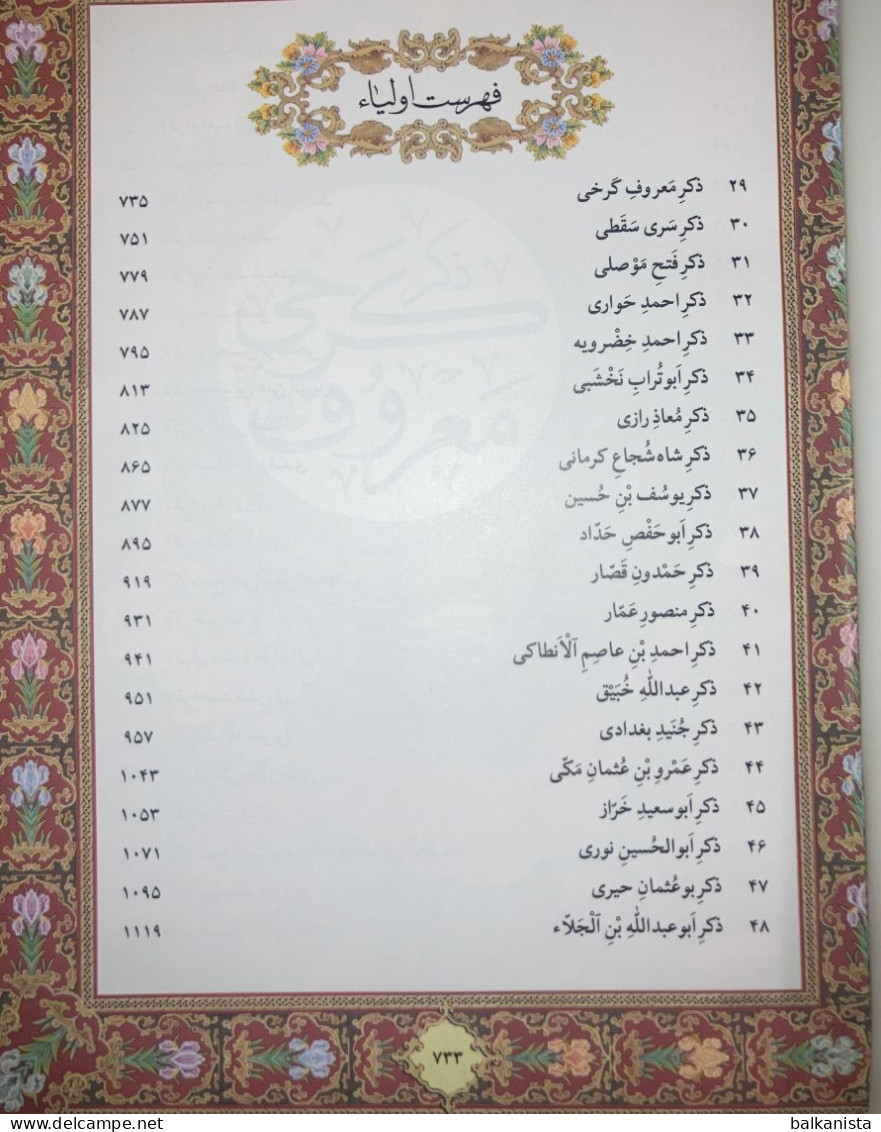 فهرست اولیاء
۲۹ ذکرِ مَعروفِ کَرخی ۷۳۵
۳۰ ذکرِ سَری سَقَطی ۷۵۱
۳۱ ذکرِ فَتحِ مَوْصلی ۷۷۹
۳۲ ذکرِ احمدِ حَواری ۷۸۷
۳۳ ذکرِ احمدِ خِضْرویه ۷۹۵
۳۴ ذکرِ اَبوتُرابِ نَخْشَبی ۸۱۳
۳۵ ذکرِ مُعاذِ رازی ۸۲۵
۳۶ ذکرِ شاه شُجاعِ کرمانی ۸۶۵
۳۷ ذکرِ یوسُف بْنِ حُسین ۸۷۷
۳۸ ذکرِ اَبوحَفْصِ حَدّاد ۸۹۵
۳۹ ذکرِ حَمْدونِ قَصّار ۹۱۹
۴۰ ذکرِ منصورِ عَمّار ۹۳۱
۴۱ ذکرِ احمدِ بْنِ عاصِمِ اَلْاَنطاکی ۹۴۱
۴۲ ذکرِ عبداللّهِ خُبَیْق ۹۵۱
۴۳ ذکرِ جُنَیدِ بغدادی ۹۵۷
۴۴ ذکرِ عَمْروِ بْنِ عُثمانِ مَکّی ۱۰۴۳
۴۵ ذکرِ اَبوسعیدِ خَرّاز ۱۰۵۳
۴۶ ذکرِ اَبوالحُسینِ نوری ۱۰۷۱
۴۷ ذکرِ بوعُثمانِ حیری ۱۰۹۵
۴۸ ذکرِ اَبوعبداللّهِ بْنِ اَلْجَلّاء ۱۱۱۹
ذکر
کرخی
معروف
۷۳۳
www.delcampe.net
balkanista